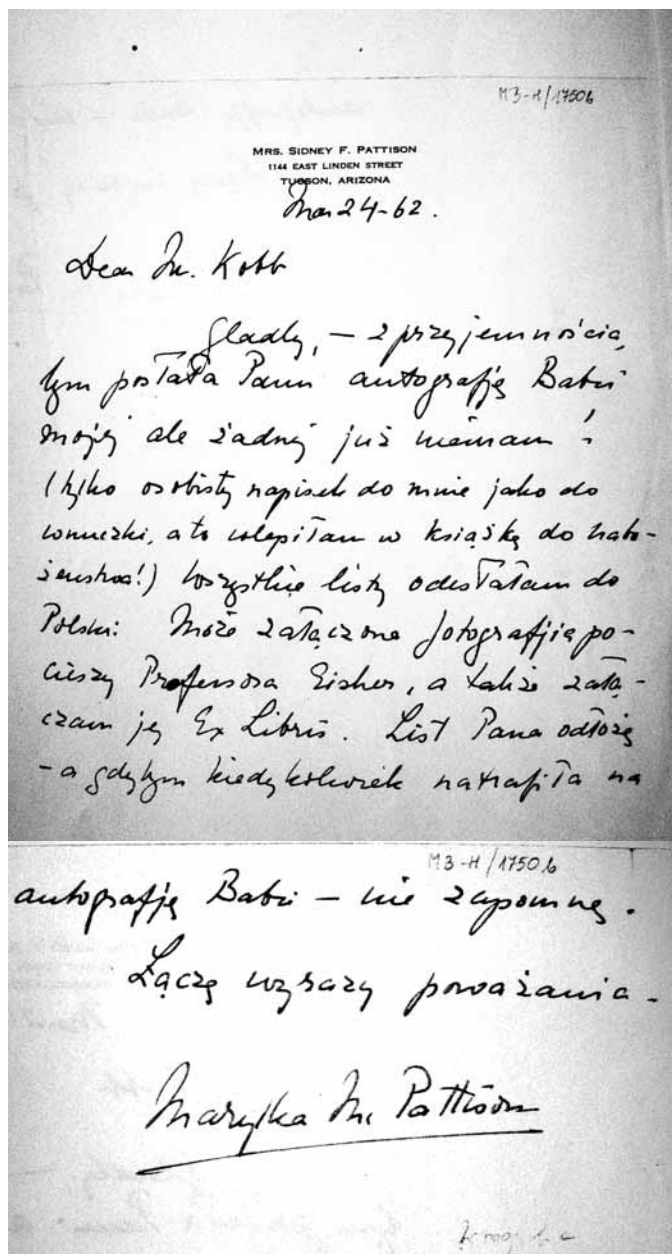 M3-H/1750b
MRS. SIDNEY F. PATTISON
1144 EAST LINDEN STREET
TUCSON, ARIZONA
Mar 24-62.
Dear M. Kobb
gladly, – z przyjemnością
bym posłała Panu autografję Babci
mojej ale żadnej już niemam!
(tylko osobisty napisek do mnie jako do
wnuczki, a to wlepiłam w książkę do nabo-
żeństwa!) Wszystkie listy odesłałam do
Polski. Może załączone fotografjię po-
cieszy Profesora, a także załą-
czam jej Ex Libris. List Pana odłożę
- a gdybym kiedykolwiek natrafiła na
M3-H/1750b
autografję Babci – nie zapomnę.
Łączę wyrazy poważania -
Maryłka M. Pattison